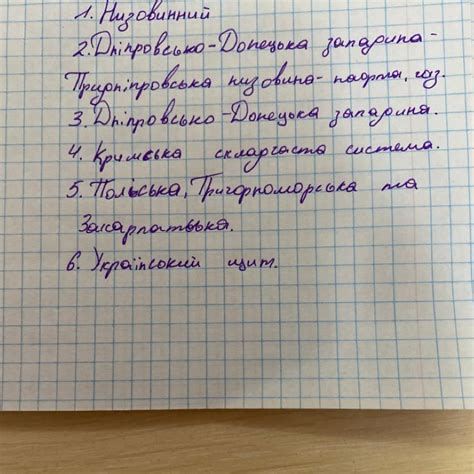 1. Низовинний
2. Дніпровсько-Донецька западина -
Придніпровська низовина - нафта, газ.
3. Дніпровсько-Донецька западина.
4. Кримська складчаста система.
5. Польська, Пригорноморська та
Закарпатська.
6. Український щит.